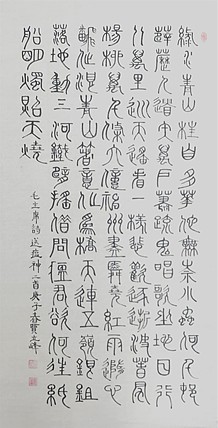 綠水青山枉自多華佗無柰小蟲何千邨
薜荔人遺矢萬戶蕭疏鬼唱歌坐地日行
八萬里巡天遙看一樣悲歡逐逝波春風
楊柳萬千條六億神州盡舜堯紅雨隨心
翻作浪青山著意化為橋天連五嶺銀鉏
落地動三河鐵臂搖借問瘟君欲何往紙
船明燭照天燒
毛主席詩送瘟神二首庚子春賢